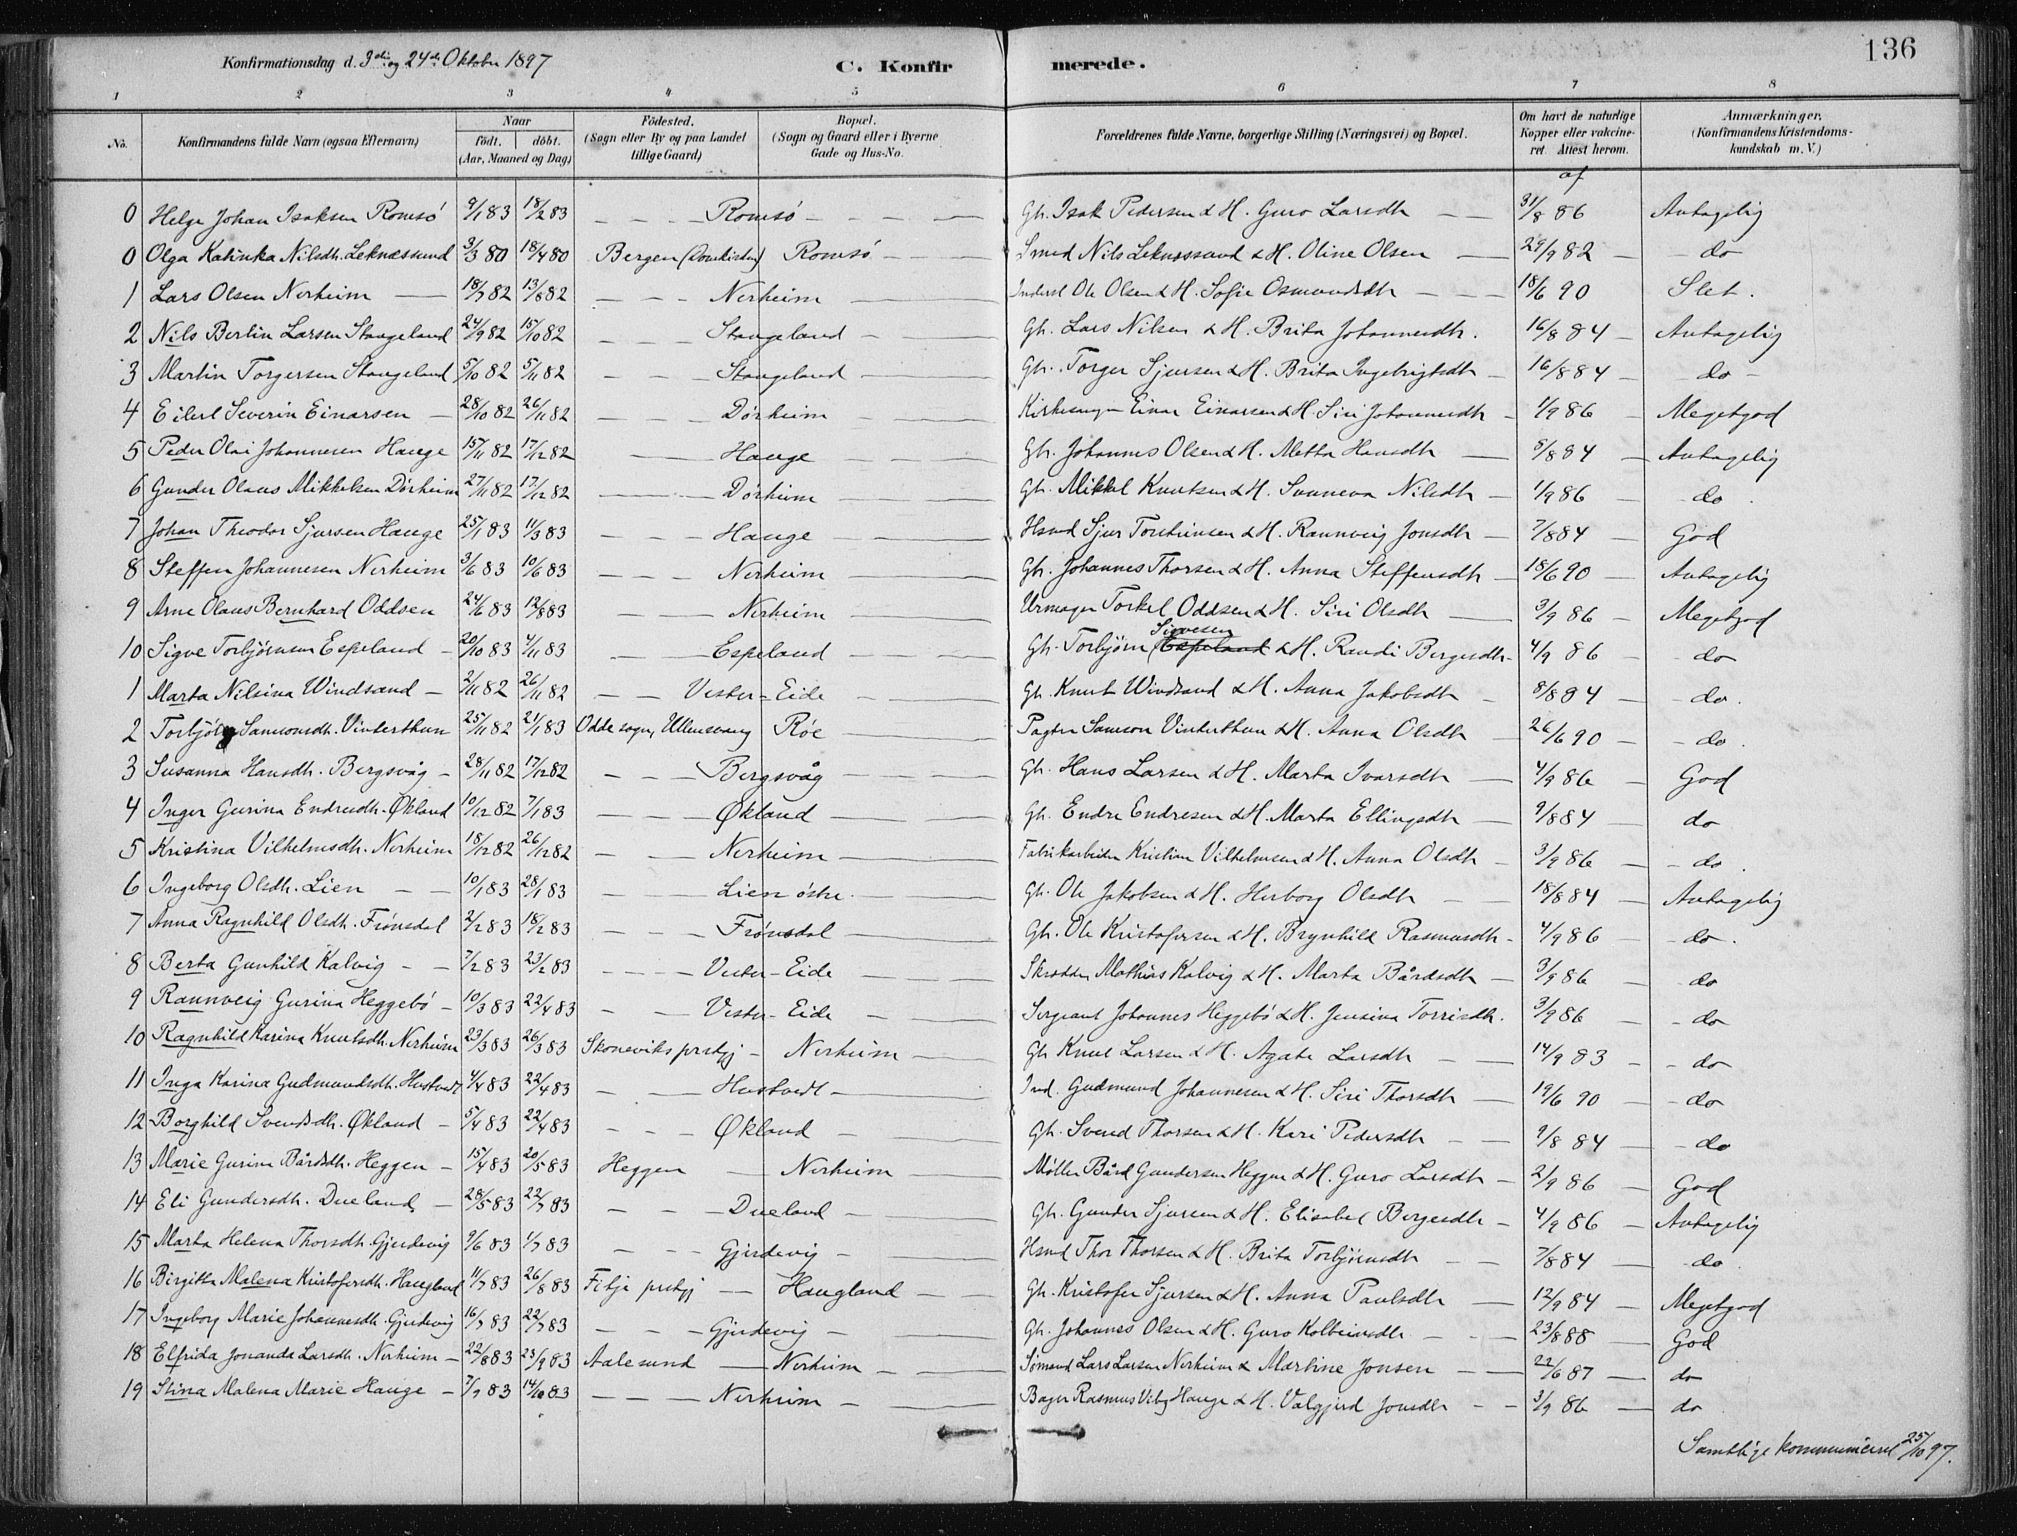 136
Konfirmationsdag d. 3die og 24de Oktober 1897 C. Konfirmerede.
1 2 3 4 5 6 7 8
No. Konfirmandens fulde Navn (ogsaa Efternavn) Naar födt. döbt. (Aar, Maaned og Dag) Födested. (Sogn eller By og paa Landet tillige Gaard) Bopæl. (Sogn og Gaard eller i Byerne Gade og Hus-No. Forældrenes fulde Navne, borgerlige Stilling (Næringsvei) og Bopæl. Om havt de naturlige Kopper eller vakcineret. Attest herom. Anmærkninger. (Konfirmandens Kristendomskundskab m. V.)
af
0 Helge Johan Isaksen Romsö 9/1 83 18/2 83 — — — Romsö — — — Gb. Isak Pedersen & H. Guro Larsdtr — — 31/8 86 Antagelig
0 Olga Katinka Nilsdtr. Leknessund 3/3 80 18/4 80 Bergen (Domkirken) Romsö — — — Smed Nils Leknessund & H. Oline Olsen — 29/9 82 — do
1 Lars Olsen Nerheim — 18/7 82 13/8 82 — — — Nerheim — — Inderst Ole Olsen & H. Sofie Osmundsdtr — — 18/6 90 Slet.
2 Nils Berlin Larsen Stangeland 24/9 82 15/10 82 — — — Stangeland — — Gb. Lars Nilsen & H. Brita Johannesdtr. 16/8 84 — Antagelig
3 Martin Torgersen Stangeland 5/10 82 5/11 82 — — Stangeland — — Gb. Torger Sjursen & H. Brita Ingebrigtsdtr — 16/8 84 — do —
4 Eilert Severin Einarsen — 28/10 82 26/11 82 — — — Dörheim — — Kirkesanger Einar Einarsen & H. Siri Johannesdtr — 1/9 86 — Megetgod
5 Peder Olai Johannesen Hauge 15/11 82 17/12 82 — — Hauge — — Gb. Johannes Olsen & H. Metta Hansdtr — 8/8 84 — Antagelig
6 Gunder Olaus Mikkelsen Dörheim 27/11 82 17/12 82 — — Dörheim — — Gb. Mikkel Knutsen & H. Sunneva Nilsdtr — 1/9 86 — do.
7 Johan Theodor Sjursen Hauge 25/1 83 11/3 83 — — — Hauge — — Hsmd Sjur Torsteinsen & H. Rannveig Jonsdtr — 7/8 84 — God
8 Steffen Johannesen Nerheim 3/6 83 10/6 83 — — — Nerheim — — Gb. Johannes Thorsen & H. Anna Steffensdtr — 18/6 90 — Antagelig
9 Arne Olaus Bernhard Oddsen 24/6 83 12/8 83 — — — Nerheim — — Urmager Torkel Oddsen & H. Siri Olsdtr — 3/9 86 — Megetgod
10 Sigve Torbjörnsen Espeland — 20/10 83 4/11 83 — — Espeland — — Gb. Torbjörn Sigvesen Espeland & H. Randi Bergesdtr — 4/9 86 — do
1 Marta Nilsina Windsand — 2/11 82 26/11 82 — — Vester-Eide — — Gb. Knut Windsand & H. Anna Jakobsdtr — 8/8 84 — do.
2 Torbjörg Samsonsdtr. Vinterthun 25/11 82 21/1 83 Odde sogn, Ullensvang Röe — — Pagter Samson Vinterthun & H. Anna Olsdtr — 26/6 90 — do.
3 Susanna Hansdtr. Bergsvåg — 28/11 82 17/12 82 — — — Bergsvåg — — Gb. Hans Larsen & H. Marta Ivarsdtr — 4/9 86 — God
4 Inger Gurina Endresdtr. Økland 10/12 82 7/1 83 — — — Økland — — Gb. Endre Endresen & H. Marta Ellingsdtr — 9/8 84 — do
5 Kristina Vilhelmsdtr. Nerheim 18/12 82 26/12 82 — — Nerheim — — Fabrikarbeider Kristian Vilhelmsen & H. Anna Olsdtr — 3/9 86 — do.
6 Ingeborg Olsdtr. Lien — — 10/1 83 28/1 83 — — — Lien östre. — — Gb. Ole Jakobsen & H. Herborg Olsdtr — 18/8 84 — Antagelig
7 Anna Ragnhild Olsdtr. Frönsdal 2/2 83 18/2 83 — — — Frönsdal — — Gb. Ole Kristofersen & H. Brynhild Rasmusdtr — 4/9 86 — do.
8 Berta Gunhild Kalvig — — 7/2 83 23/2 83 — — — Vester-Eide — — Skrædder Mathias Kalvig & H. Marta Bårdsdtr — 3/9 86 — do
9 Rannveig Gurina Heggebö — 10/3 83 22/4 83 — — Vester-Eide — — Sergeant Johannes Heggebö & H. Jensina Torrisdtr. 3/9 86 — do
10 Ragnhild Karina Knutsdtr. Nerheim 23/3 83 26/3 83 Skoneviks prstgj — Nerheim — — Gb Knut Larsen & H. Agate Larsdtr — — 14/9 83 — do
11 Inga Karina Gudmundsdtr. Hustvedt 4/4 83 22/4 83 — — Hustvedt — — Ind. Gudmund Johannesen & H. Siri Thorsdtr — 19/6 90 — do
12 Borghild Svendsdtr. Økland — 5/4 83 22/4 83 — — — Økland — — Gb. Svend Thorsen & H. Kari Pedersdtr — — 9/8 84 — do
13 Marie Gurine Bårdsdtr. Heggen — 15/4 83 20/5 83 Heggen — Nerheim — Möller Bård Gundersen Heggen & H. Guro Larsdtr — 2/9 86 — God
14 Eli Gundersdtr. Dueland — 28/5 83 22/7 83 — — Dueland — — Gb. Gunder Sjursen & H. Elisabet Bergesdtr — 4/9 86 — Antagelig
15 Marta Helena Thorsdtr. Gjerdevig 9/6 83 1/7 83 — — Gjerdevig — — Hsmd Thor Thorsen & H. Brita Torbjörnsdtr — — 7/8 84 — do.
16 Birgitta Malena Kristofersdtr. Haugland 11/7 83 26/8 83 Fitje prstgj — Haugland — — Gb. Kristofer Sjursen & H. Anna Paulsdtr — 12/9 84 — Megetgod
17 Ingeborg Marie Johannesdtr. Gjerdevig 16/7 83 22/7 83 — — — Gjerdevig — — Gb. Johannes Olsen & H. Guro Kolbeinsdtr — — 23/8 88 — God
18 Elfrida Jonanda Larsdtr. Nerheim — 22/8 83 23/9 83 Aalesund — Nerheim — — Sömand Lars Larsen Nerheim & Martine Jonsen — — 22/6 87 — do
19 Stina Malena Marie Hauge — 7/9 83 14/10 83 — — — Nerheim — — Bager Rasmus Viby Hauge & H. Valgjerd Jonsdtr — — 3/9 86 — do
Samtlige kommuniceret 25/10 97.